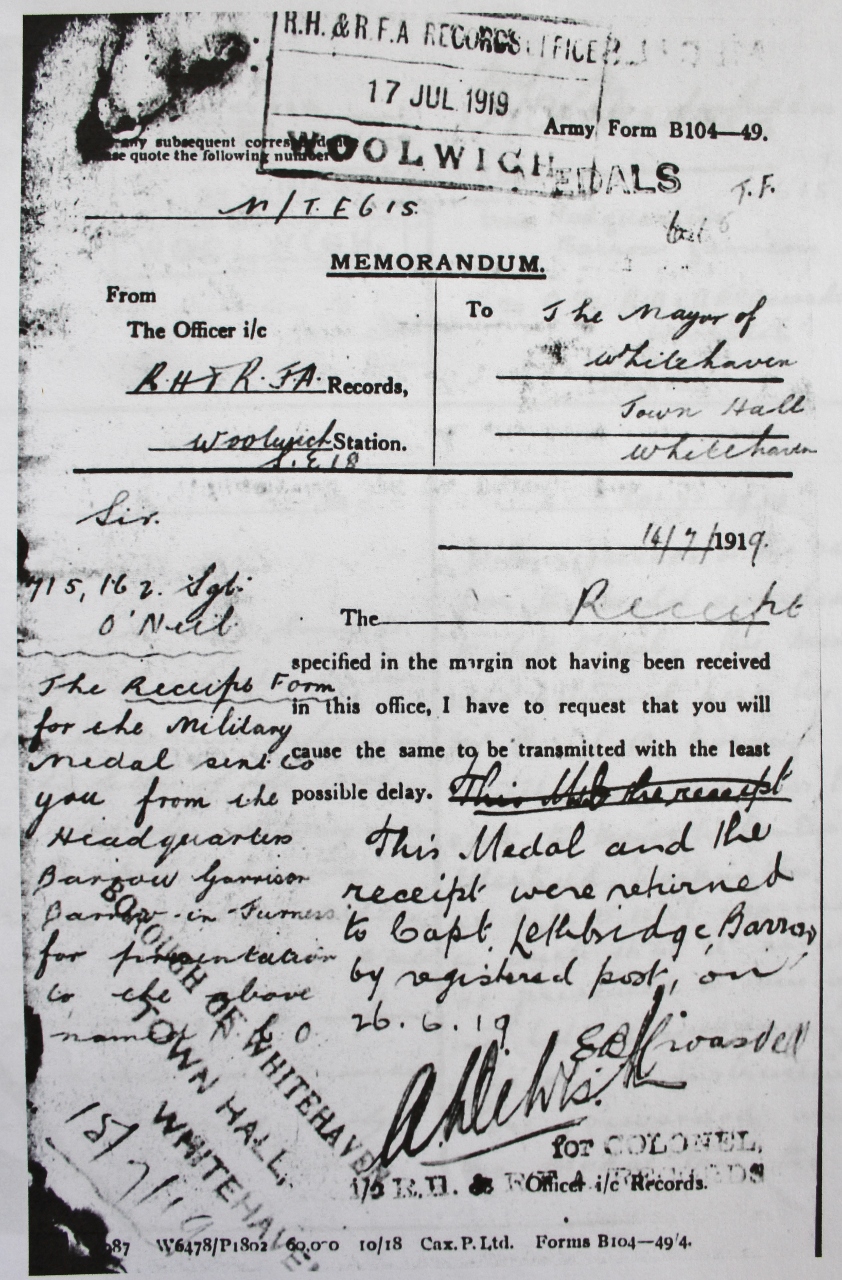 R.H. & R.F.A RECORDS OFFICE
17 JUL 1919
WOOLWICH
MEDALS
Army Form B104—49.
any subsequent
quote the following number
T.F.
MEMORANDUM.
From
The Officer i/c
R.H & R.FA. Records,
Woolwich Station.
S.E 18
To The Mayor of
Whitehaven
Town Hall
Whitehaven
Sir.
14/7/1919.
715,162. Sgt.
O'Neil
The Receipt Form
for the Military
Medal sent to
you from the
Headquarters
Barrow Garrison
Barrow-in-Furness
for presentation
to the above
named
The Receipt
specified in the margin not having been received
in this office, I have to request that you will
cause the same to be transmitted with the least
possible delay. This the receipt
This Medal and the
receipt were returned
to Capt. Lethbridge, Barrow
by registered post, on
26.6.19
for COLONEL,
i/c R.H. & R.F.A. RECORDS
Officer i/c Records.
BOROUGH OF WHITEHAVEN
TOWN HALL,
WHITEHAVEN
15/7/19
W6478/P1802 10/18 Cax. P. Ltd. Forms B104—49/4.